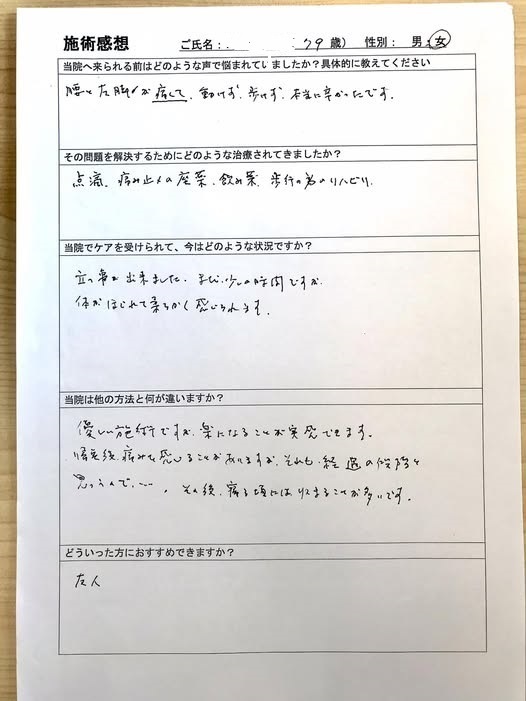 施術感想 ご氏名： 79歳） 性別： 男・女
当院へ来られる前はどのような声で悩まれていましたか？具体的に教えてください
腰と左脚が痛くて、動けず、歩けず、本当に辛かったです。
その問題を解決するためにどのような治療されてきましたか？
点滴、痛み止メの座薬、飲み薬、歩行の為のリハビリ、
当院でケアを受けられて、今はどのような状況ですか？
立つ事が出来ました、まだ少しの時間ですが、
体がほぐれて柔らかく感じられます。
当院は他の方法と何が違いますか？
優しい施術ですが、楽になることが実感できます。
帰宅後、痛みを感じることがありますが、それも、経過の段階と
思うんで、……、その後、寝る頃にはおさまることが多いです。
どういった方におすすめできますか？
友人